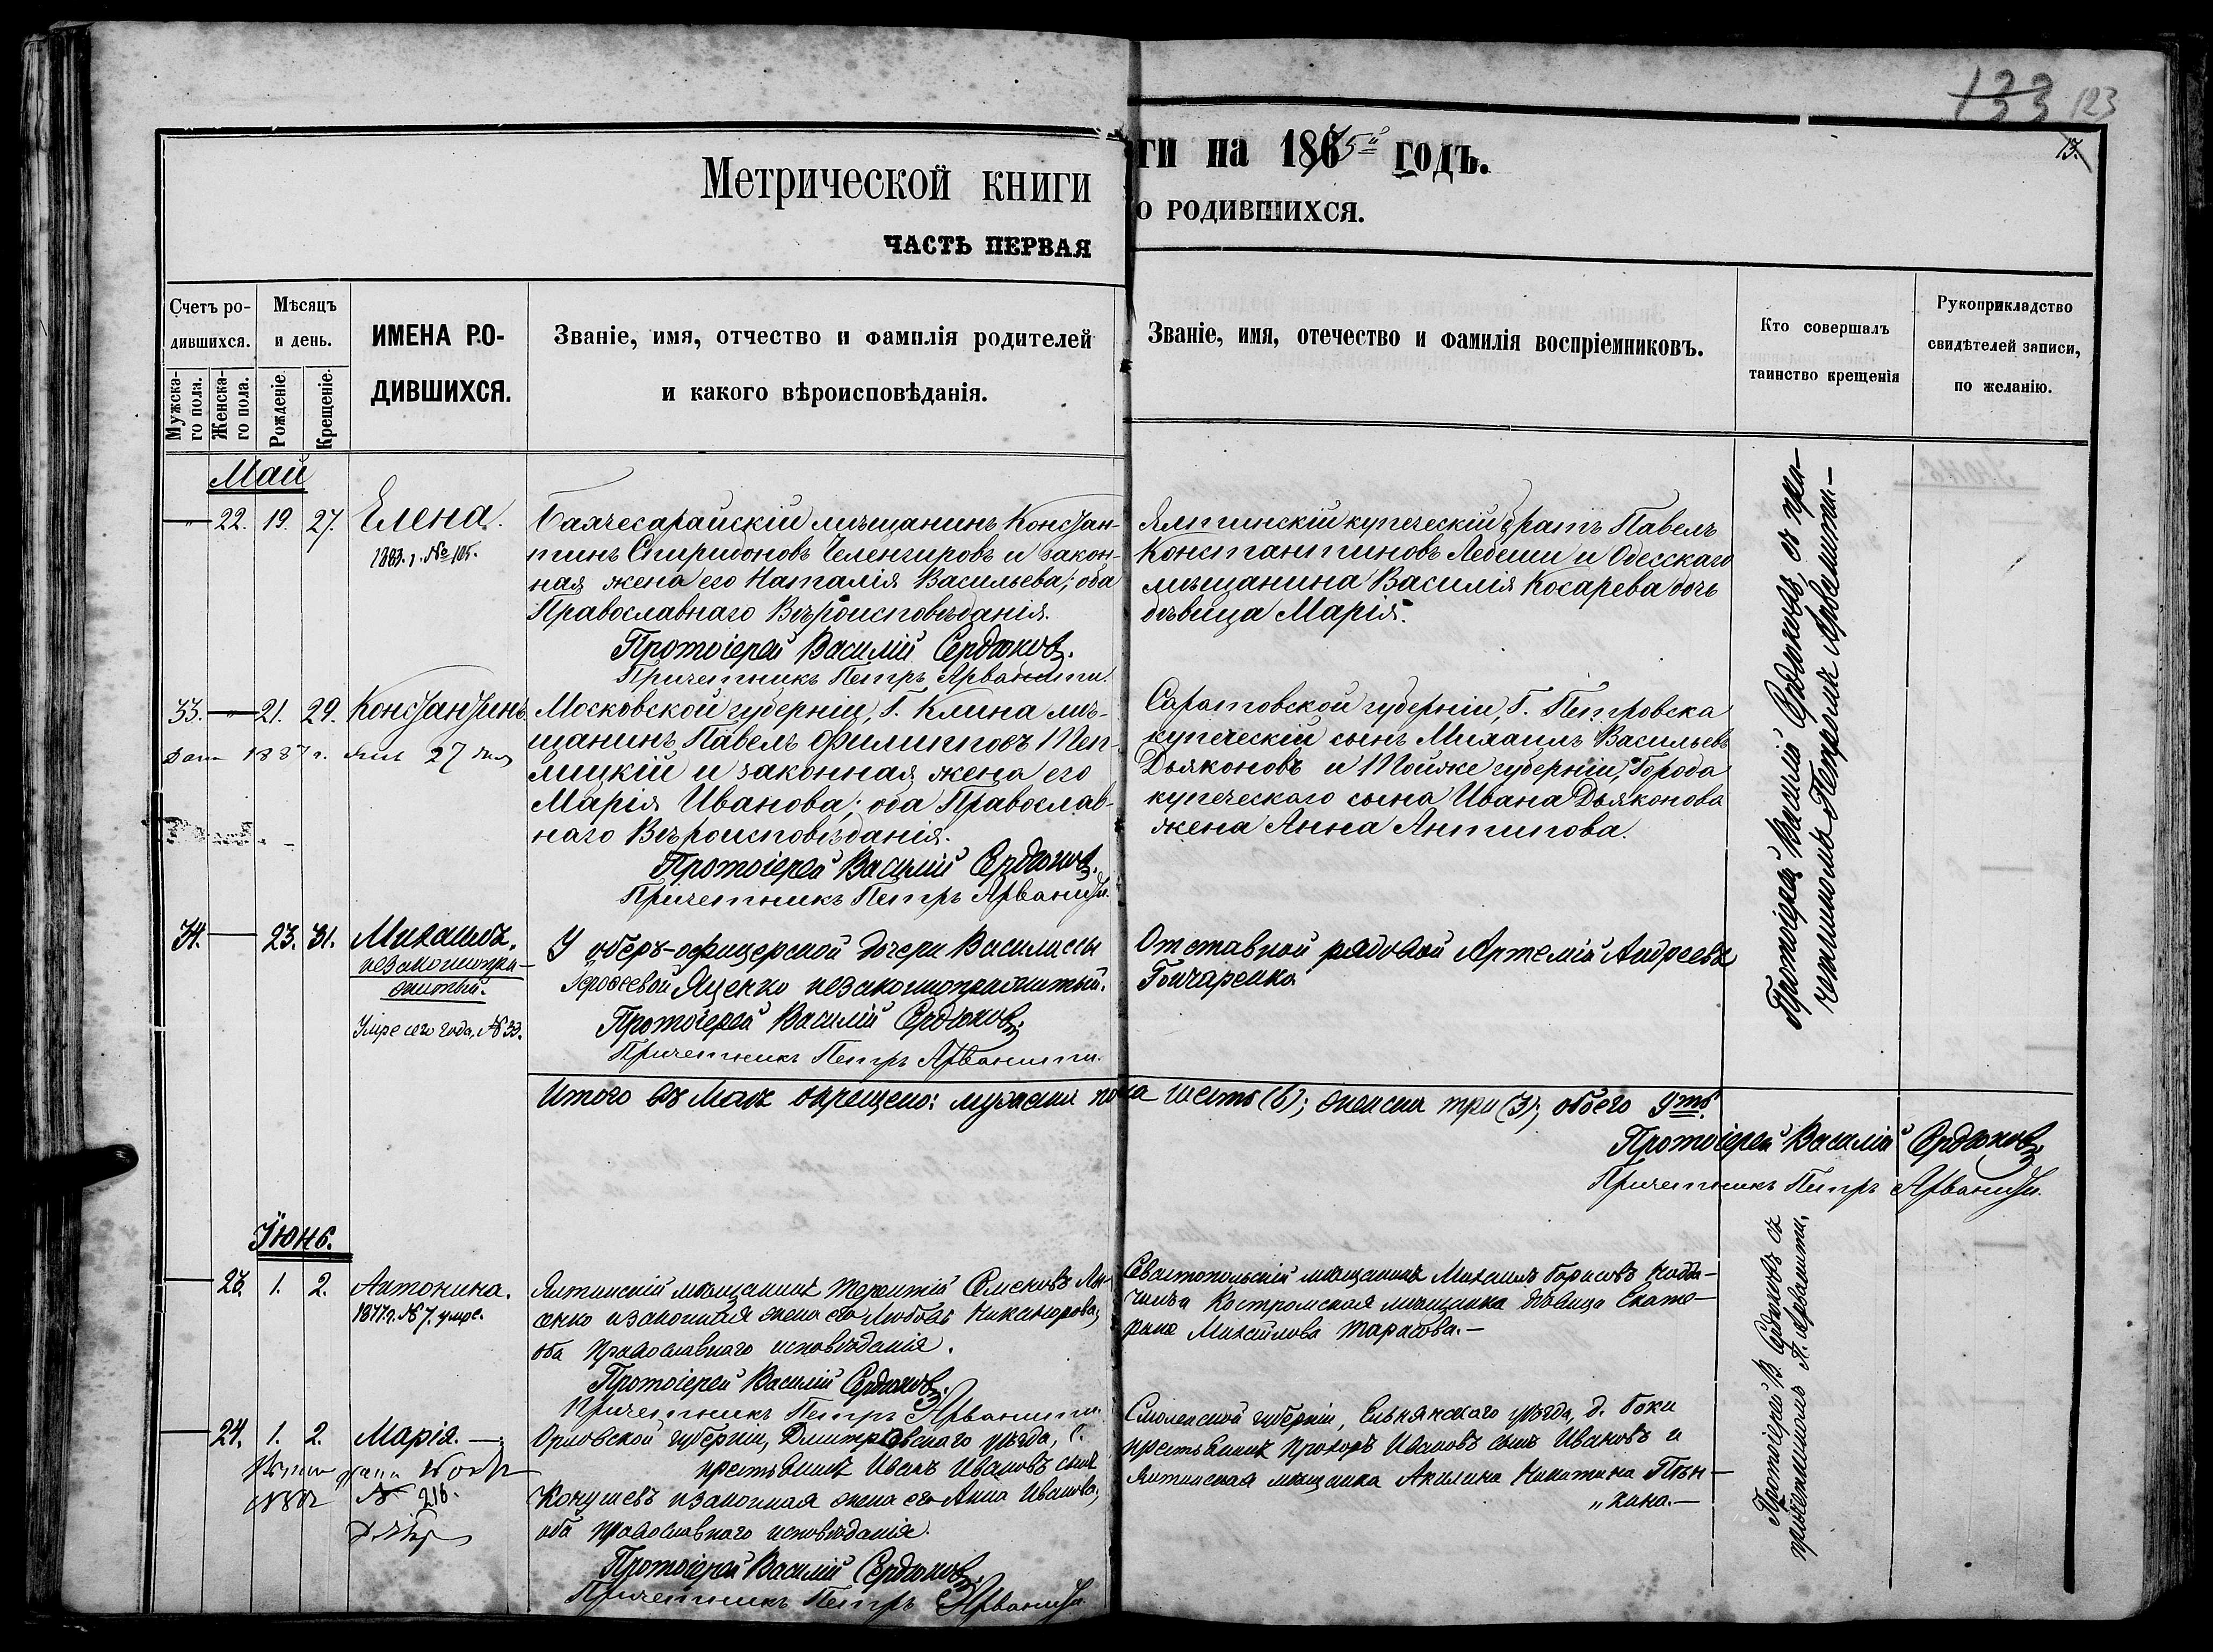 133 123
13.
Метрической книги
ги на 1875й годъ.
ЧАСТЬ ПЕРВАЯ
О РОДИВШИХСЯ.
Счетъ ро-
дившихся.
Мужска-
го пола.
Женска-
го пола.
Мѣсяцъ
и день.
Рожденіе.
Крещеніе.
ИМЕНА РО-
ДИВШИХСЯ.
Званіе, имя, отчество и фамилія родителей
и какого вѣроисповѣданія.
Званіе, имя, отечество и фамилія воспріемниковъ.
Кто совершалъ
таинство крещенія
Рукоприкладство
свидѣтелей записи,
по желанію.
Май
22. 19. 27. Елена.
1883. г. № 105.
Бахчесарайскій мѣщанинъ Констан-
тинъ Спиридоновъ Челенгировъ и закон-
ная жена его Наталія Васильева; оба
Православнаго Вѣроисповѣданія.
Протоіерей Василій Сердюковъ.
Причетникъ Петръ Арванити.
Ялтинскій купеческій братъ Павелъ
Константиновъ Лебеши и Одесскаго
мѣщанина Василія Косарева дочь
дѣвица Марія.
33. 21. 29. Константинъ
1887 г. 27
Московской губерніи, Г. Клина мѣ-
щанинъ Павелъ Филипповъ Теп-
лицкій и законная жена его
Марія Иванова; оба Православ-
наго Вѣроисповѣданія.
Протоіерей Василій Сердюковъ.
Причетникъ Петръ Арванити.
Саратовской губерніи, Г. Петровска
купеческій сынъ Михаилъ Васильевъ
Дьяконовъ и Тойже губерніи, Города
купеческаго сына Ивана Дьяконова
жена Анна Антипова.
34. 23. 31. Михаилъ.
незаконорж-
енный.
Умре сего года, № 33.
У оберъ-офицерской дочери Василисы
Ерофеевой Яценко незаконнорожденный.
Протоіерей Василій Сердюковъ.
Причетникъ Петръ Арванити.
Отставной рядовой Артемій Андреевъ
Гончаренко
Протоіерей Василій Сердюковъ съ при-
четникомъ Петромъ Арванити.—
Итого въ Маѣ крещено: мужеска пола шесть (6); женска три (3); обоего 9ть.
Протоіерей Василій Сердюковъ
Причетникъ Петръ Арванити.
Іюнь.
23. 1. 2. Антонина.
1877 г. № 7. умре.
Ялтинскій мѣщанинъ Терентій Семеновъ Ли-
сенко и законная жена его Любовь Никанорова,
оба православнаго исповѣданія.
Протоіерей Василій Сердюковъ.
Причетникъ Петръ Арванити.
Севастопольскій мѣщанинъ Михаилъ Борисовъ
и Костромская мѣщанка дѣвица Екате-
рина Михайлова Тарасова.—
24. 1. 2. Марія.—
№ 218.
Орловской губерніи, Дмитровскаго уѣзда, с.
крестьянинъ Иванъ Ивановъ сынъ
Конушевъ и законная жена его Анна Иванова,
оба православнаго исповѣданія.
Протоіерей Василій Сердюковъ.
Причетникъ Петръ Арванити.
Смоленской губерніи, Ельнянскаго уѣзда, д. Боки
крестьянинъ Прохоръ Ивановъ сынъ Ивановъ и
Ялтинская мѣщанка Акилина Никитина Пѣн-
„кина.—
Протоіерей В. Сердюковъ съ
причетникомъ П. Арванити.